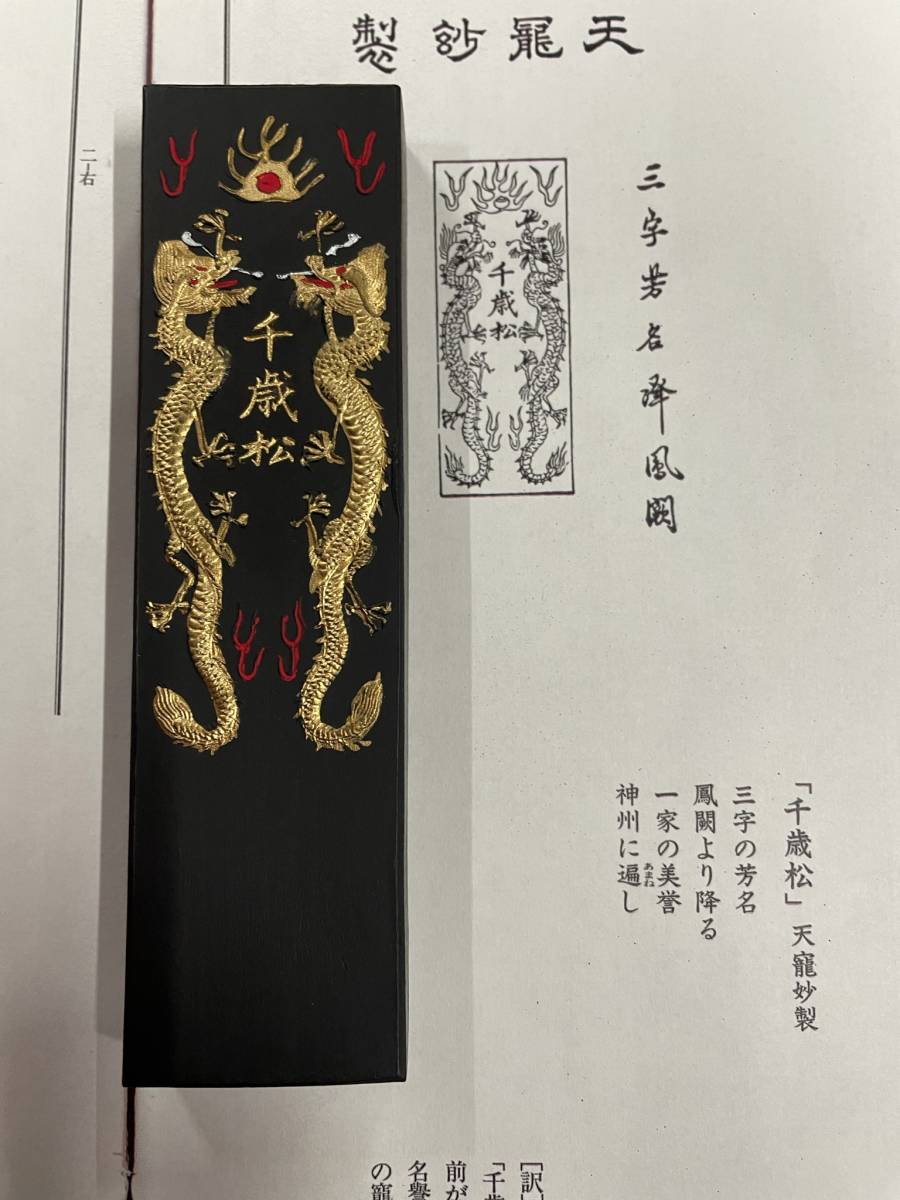 天寵妙製
三字芳名降鳳闕
千歳松
千歳松
二-右
「千歳松」天寵妙製
三字の芳名
鳳闕より降る
一家の美誉
神州に遍し
あまね
[訳]
「千歳
前が
名譽
の寵